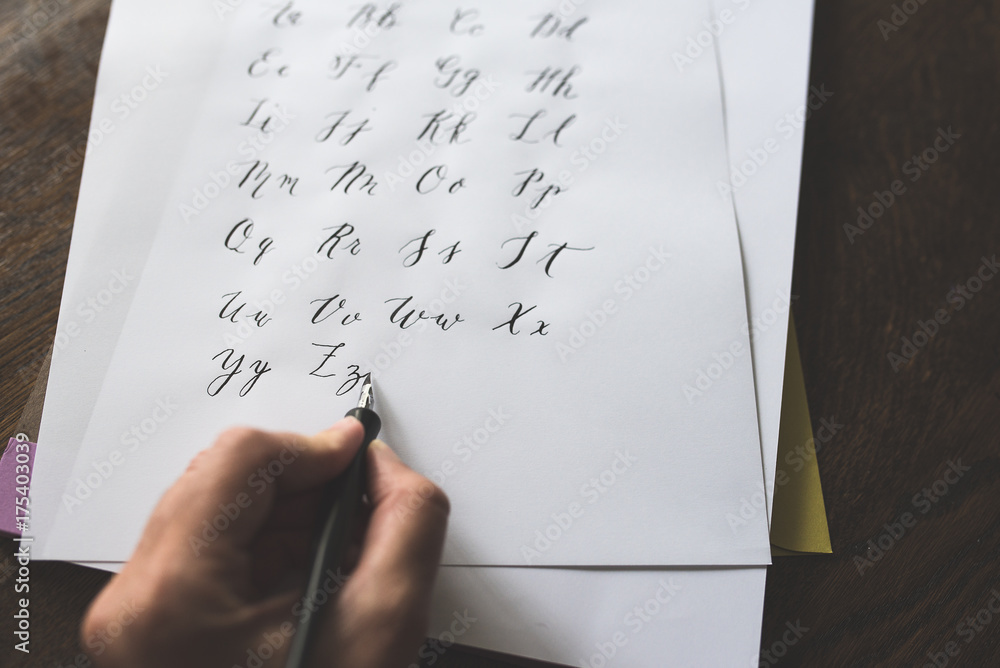 Aa Bb Cc Dd
Ee Ff Gg Hh
Ii Jj Kk Ll
Mm Nn Oo Pp
Qq Rr Ss Tt
Uu Vv Ww Xx
Yy Zz
Adobe Stock | #175403039